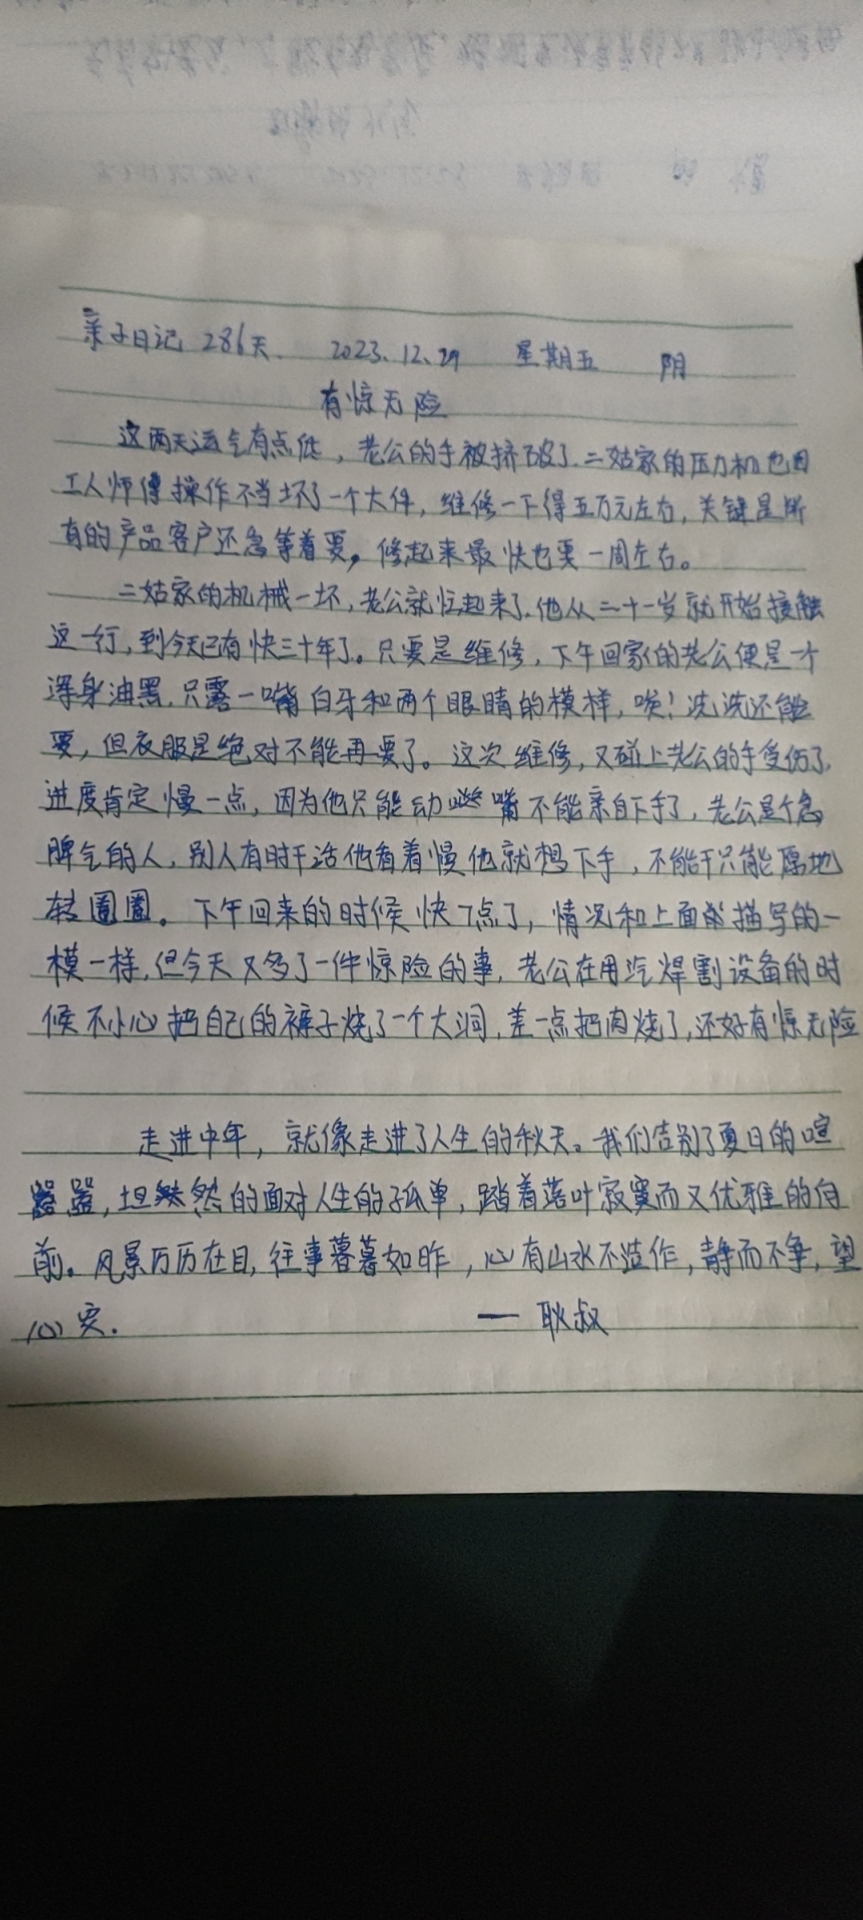 亲子日记 286天. 2023.12.29 星期五 阴
有惊无险
这两天运气有点低，老公的手被挤破了.二姑家的压力机也因
工人师傅操作不当坏了一个大件，维修一下得五万元左右，关键是所
有的产品客户还急等着要，修起来最快也要一周左右。
二姑家的机械一坏，老公就忙起来了.他从二十一岁就开始接触
这一行，到今天已有快三十年了。只要是维修，下午回家的老公便是一个
浑身油黑，只露一嘴白牙和两个眼睛的模样，唉！洗洗还能
要，但衣服是绝对不能再要了。这次维修，又碰上老公的手受伤了，
进度肯定慢一点，因为他只能动嘴不能亲自下手了，老公是个急
脾气的人，别人有时干活他看着慢他就想下手，不能干只能原地
转圈圈。下午回来的时候快7点了，情况和上面描写的一
模一样，但今天又多了一件惊险的事，老公在用汽焊割设备的时
候不小心把自己的裤子烧了一个大洞，差一点把肉烧了，还好有惊无险
走进中年，就像走进了人生的秋天。我们告别了夏日的喧
嚣，坦然的面对人生的孤单，踏着落叶寂寞而又优雅的向
前。风景历历在目，往事暮暮如昨，心有山水不造作，静而不争，望
心安.
— 耿叔